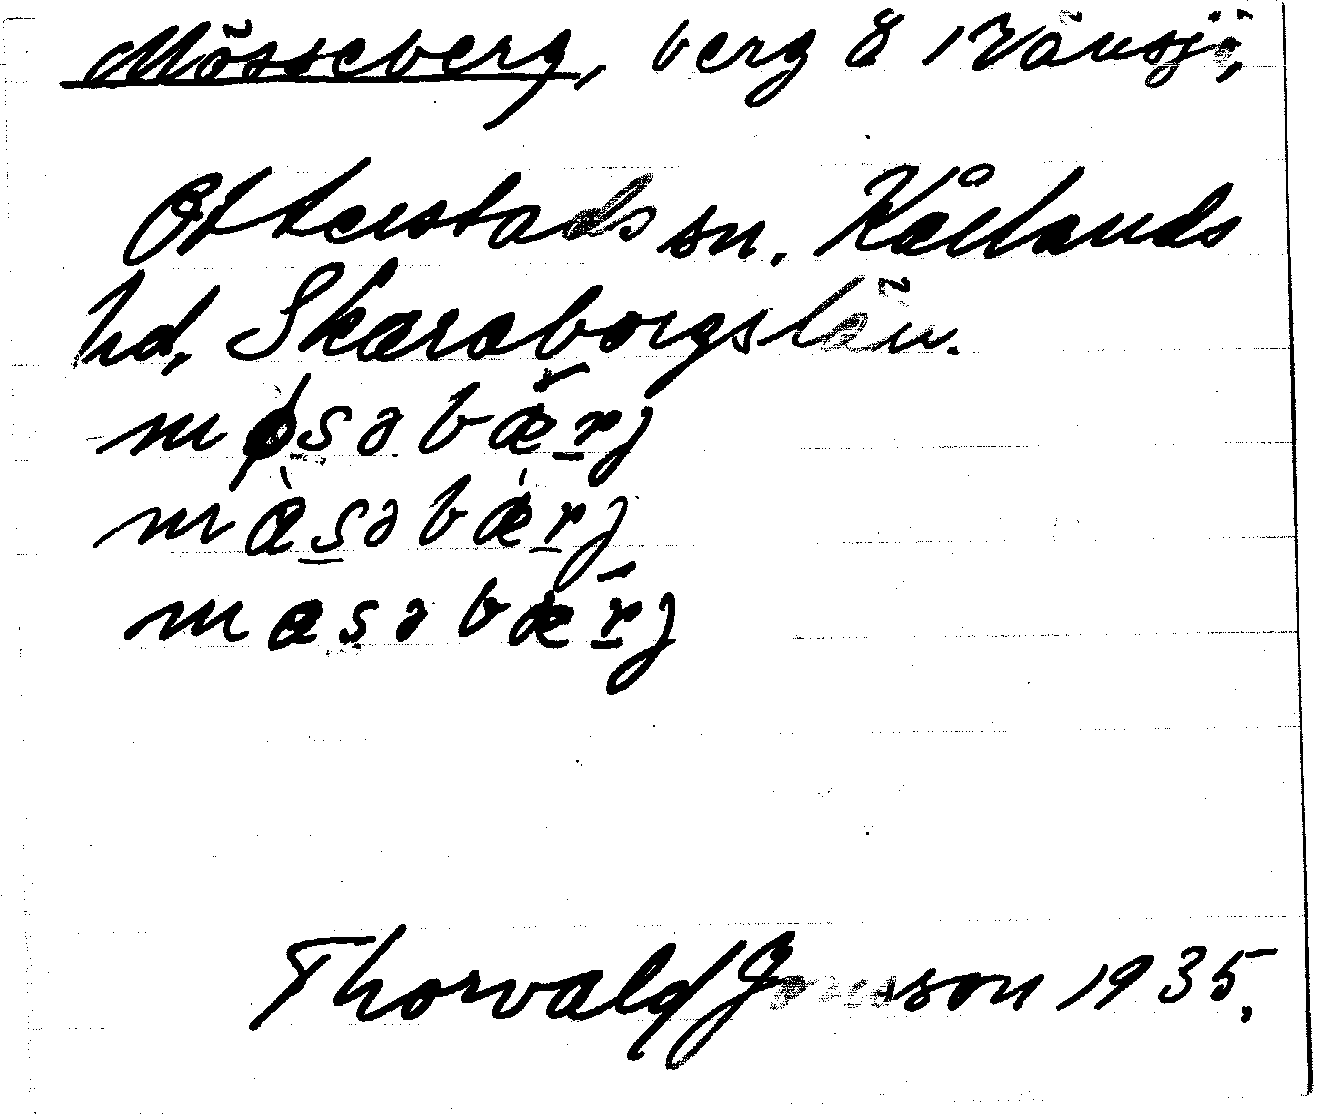 Mösseberg, berg
Otterstads sn. Kållands
hd, Skaraborgs län.
møsəbærj
mæsəbærj
mæsəbærj
Thorvald son 1935.